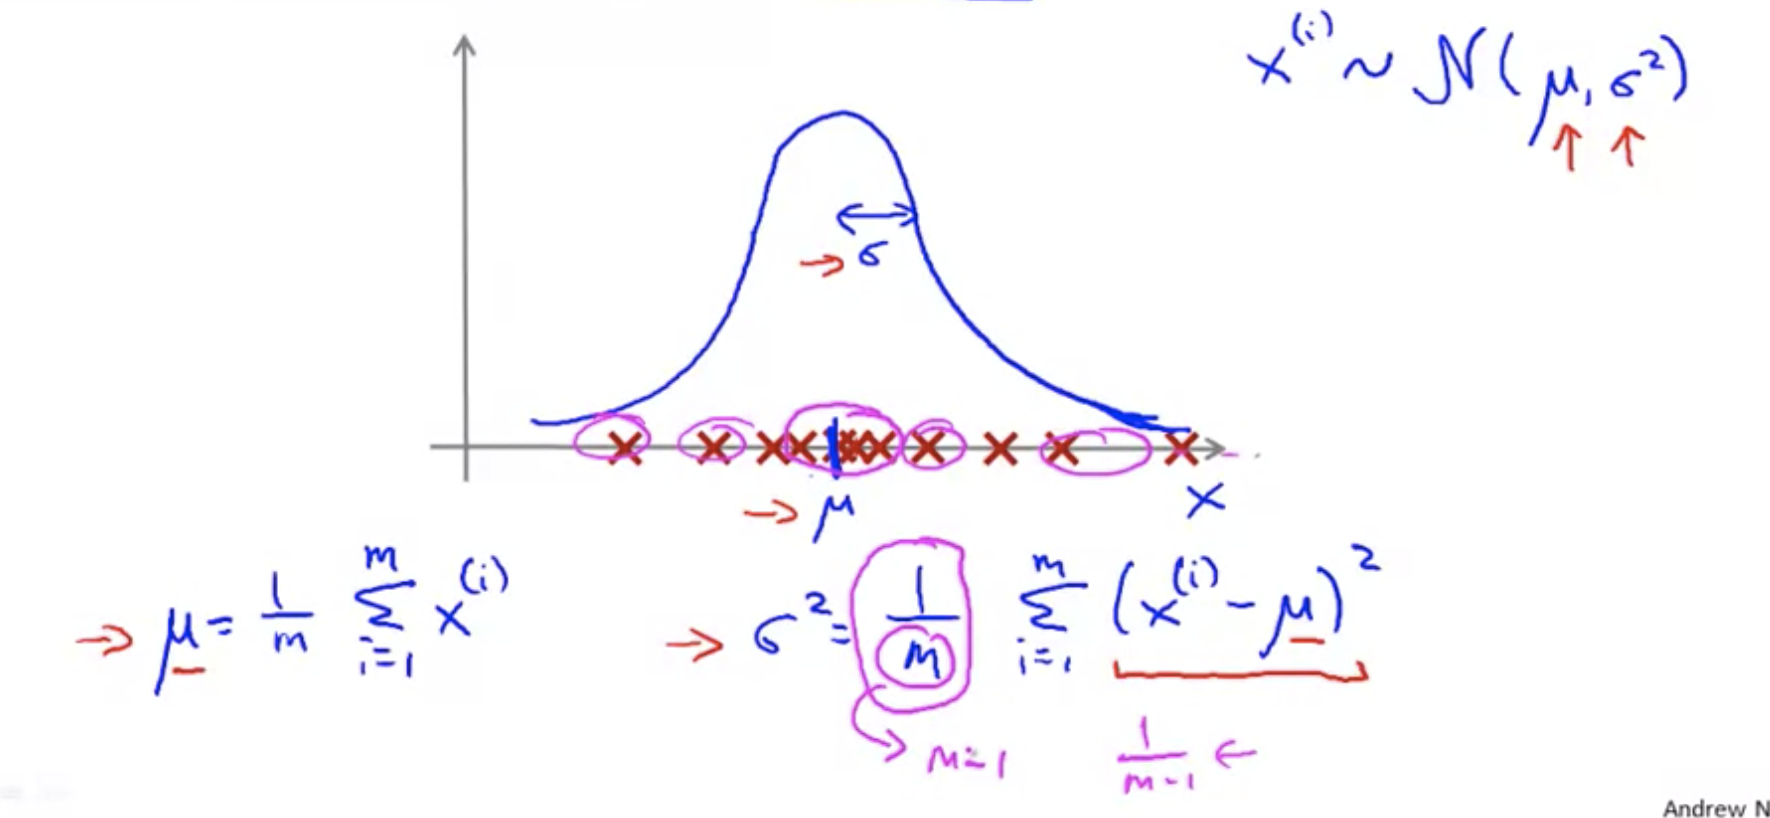 x^(i) ~ N(μ, σ²)
→ σ
→ μ
x
→ μ = 1/m Σ_{i=1}^{m} x^(i)
→ σ² = 1/m Σ_{i=1}^{m} (x^(i) - μ)²
m-1
1/(m-1) ←
Andrew N